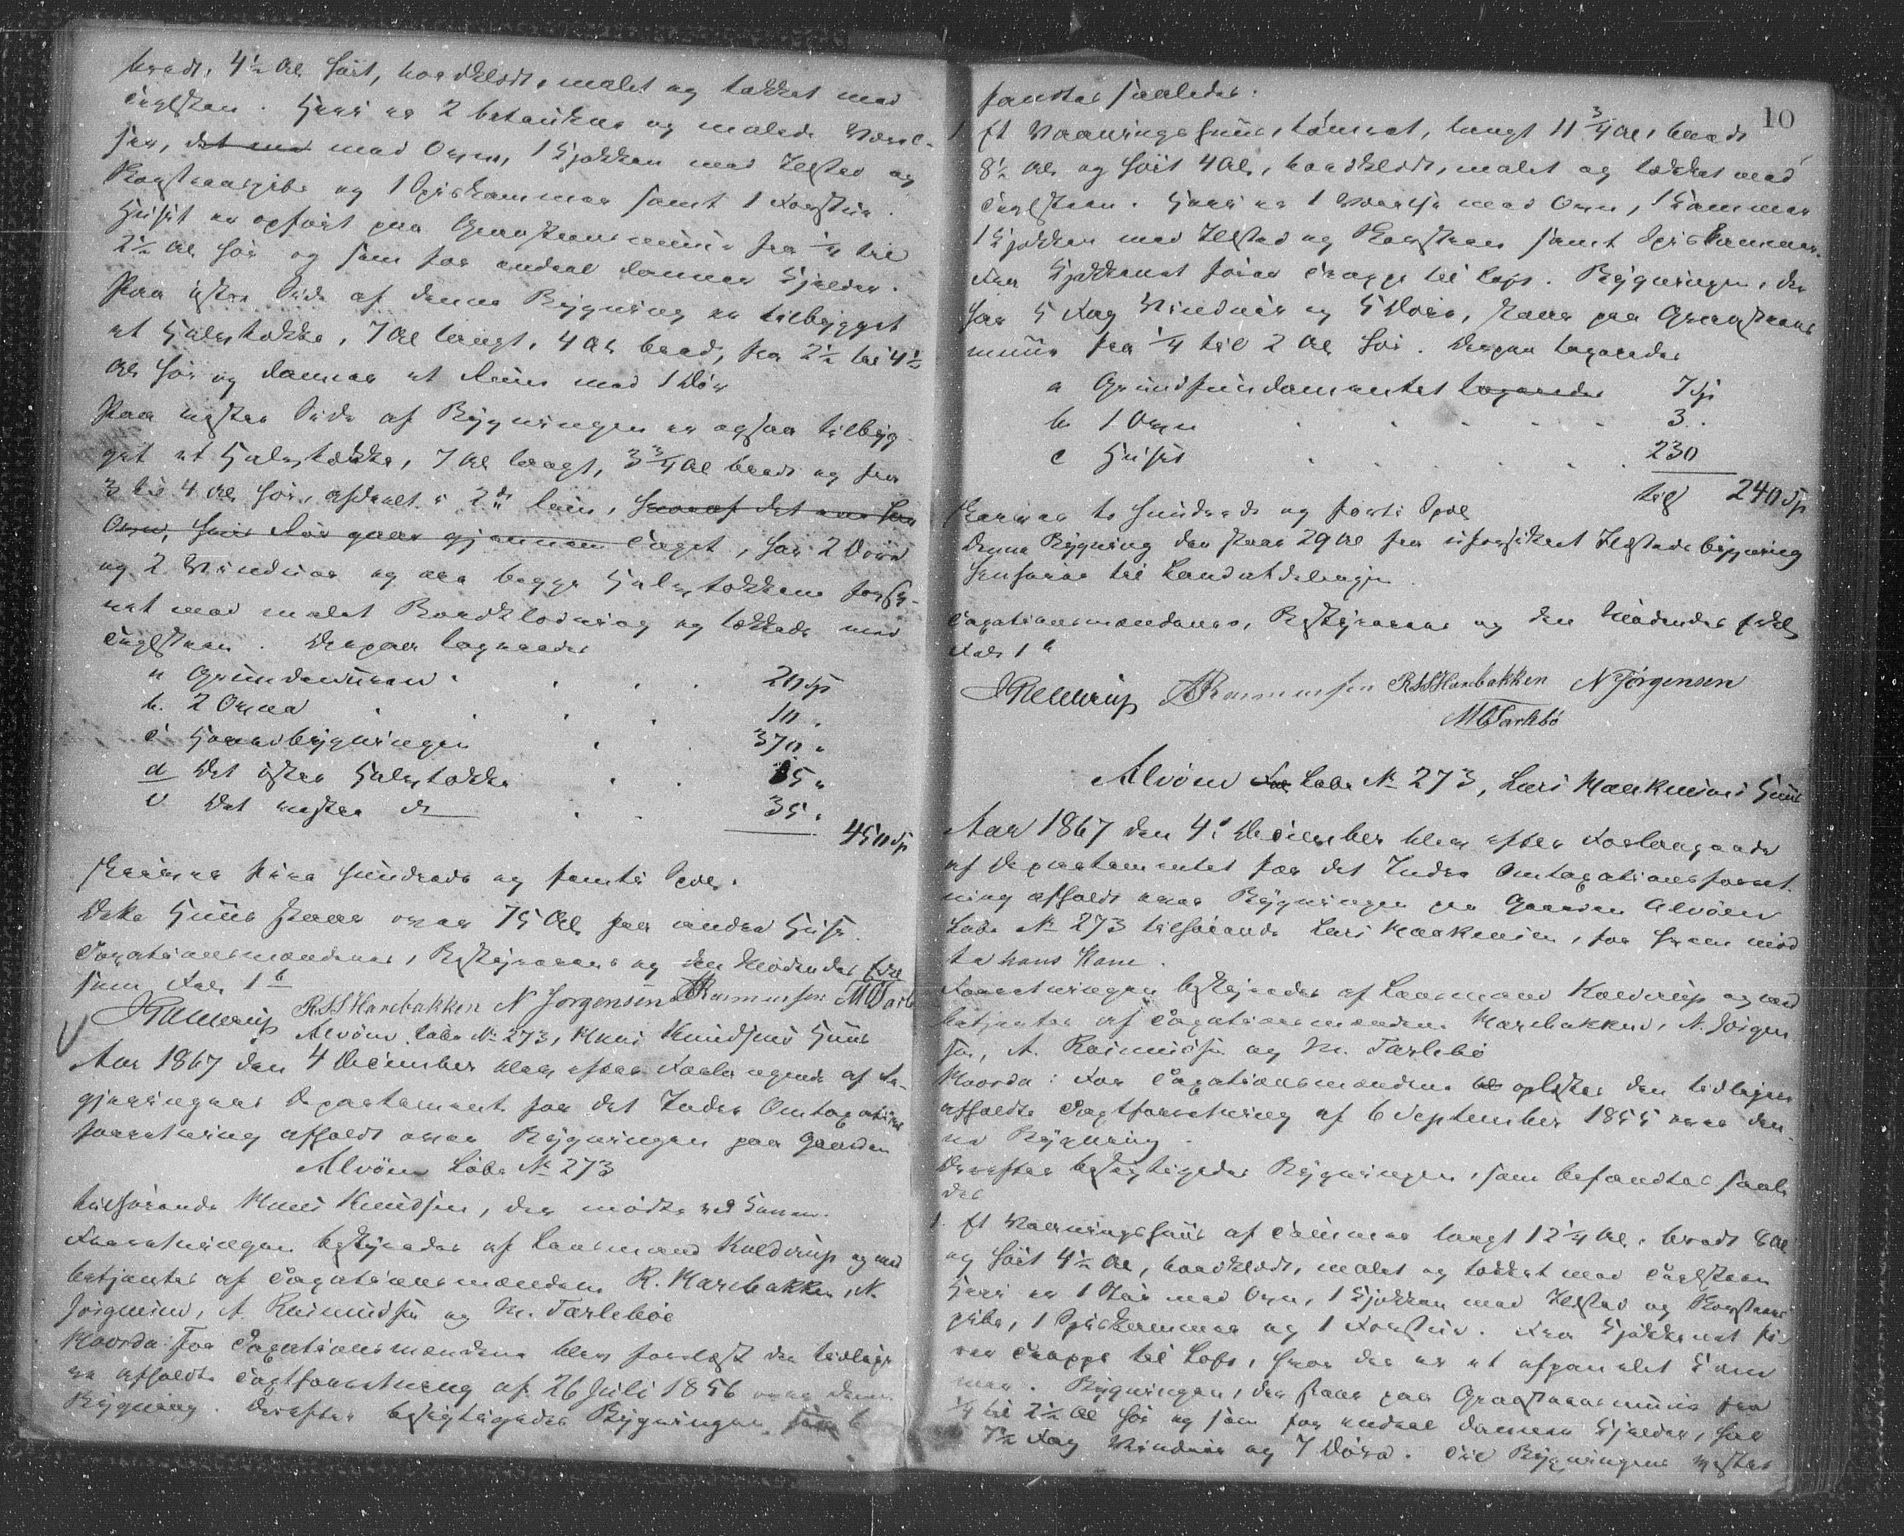 bredt, 4½ Al. høit, bordklædt, malet og takket med
Teglsteen. Heri er 2 betrukne og malede Værel-
ser, det ene med Ovn, 1 Kjøkken med Ildsted og
Skorsteenspibe og 1 Spiskammer samt 1 Forstue.
Huset er opført paa Graasteensmuur fra ¼ til
2½ Al. høi og som for endeel danner Kjelder.
Paa østre Side af denne Bygning er tilbygget
et Halvtække, 7 Al. langt, 4 Al. bred, fra 2½ til 4½
Al. høi og danner et Rum med 1 Dør
Paa vestre Side af Bygningen er ogsaa tilbyg-
get et Halvtække, 7 Al. langt, 3¾ Al. bredt og fra
3 til 4 Al. høi, afdeelt i 2de Rum, hvoraf det ene har
Ovn, hvis Rør gaar gjennem Taget, har 2 Døre
og 2 Vinduer og ere begge Halvtækkene forsy-
net med malet Bordklædning og tækkede med
Teglsteen. Derpaa taxeredes
a Grundmuren . . . 20 Sp
b. 2 Ovne . . . . 10 "
c Hovedbygningen . . 370 "
d Det østre Halvtække . . 15 "
e Det vestre do . . 35 "
450 Sp
skriver fire hundrede og femti Spd.
Dette Huus staar over 75 Al. fra andre Huse.
Taxationsmændenes, Bestyrerens og den Mødendes Edl
som Fol. 1 b
RSSHarebakken N Jørgensen ARasmussen MOTarleb
Alvøen Løbe No 273, Hans Knudsens Huus
Aar 1867 den 4 December blev efter Forlangende af Re-
gjeringens Departement for det Indre Omtaxations
forretning afholdt over Bygningen paa Gaarden
Alvøen Løbe No 273
tilhørende Hans Knudsen, der mødte ved Sønn.
Forretningen bestyredes af Lensmand Kalderup og ved
betjentes af Taxationsmændene R. Harebakken, N.
Jörgensen, A. Rasmussen og M. Tarlebøe
Hvorda: For Taxationsmændene blev forelæst den tidlige
re afholdte Taxtforretning af 26 Juli 1856 over denne
Bygning. Derefter besigtigedes Bygningen som b
10
fandtes saaledes:
1. Et Vaaningshuus, tømret, langt 11¾ Al., bredt
8½ Al. og høit 4 Al., bordklædt, malet og tækket med
Teglsteen. Heri er 1 Værelse med Ovn, 1 Kammer
1 Kjøkken med Ildsted og Skorsteen samt Spiskammer.
Fra Kjøkkenet fører Trappe til Loft. Bygningen, der
har 5 Fag Vinduer og 5 Døre, staar paa Graasteens
muur fra ¼ til 2 Al. høi. Derpaa taxeredes
a Grundfundamentet taxeredes 7 Sp
b 1 Ovn . . . . . 3 .
c Huset . . . . . 230
til 240 Sp
skriver to hundrede og forti Spd.
Denne Bygning der staar 29 Al. fra uforsikret Ildstedsbygning
henføres til Landafdelingen.
Taxationsmændenes, Bestyrerens og den Mødendes Edl
Fol. 1 b
ARasmussen RSSHarebakken N Jørgensen
MOTarlebö
Alvöen Løbe No 273, Lars Haakensens Huus
Aar 1867 den 4. December blev efter Forlangende
af Departementet for det Indre Omtaxationsforret
ning afholdt over Bygningen paa Gaarden Alvøen
Løbe No 273 tilhørende Lars Haakensen, for hvem mød
te hans Kone.
Forretningen bestyredes af Lensmand Kalderup og ved
betjentes af Taxationsmændene Harebakken, N. Jörgen
sen, A. Rasmussen og M. Tarlebö
Hvorda: For Taxationsmændene oplæstes den tidligere
afholdte Taxtforretning af 6 September 1855 over den-
ne Bygning.
Derefter besigtigedes Bygningen, som befandtes saale
des
1. Et Vaaningshuus af Tømmer langt 12¼ Al. bredt 8 Al
og høit 4½ Al., bordklædt, malet og tækket med Teglsteen
Heri er 1 Stue med Ovn, 1 Kjøkken med Ildsted og Skorsteens
pibe, 1 Spiskammer og 1 Forstue. Fra Kjøkkenet fø
rer Trappe til Loft, hvor der er et afpanelet Kam
mer. Bygningen, der staar paa Graasteensmuur fra
¼ til 2½ Al. høi og som for endeel danner Kjelder, har
7½ Fag Vinduer og 7 Døre. Til Bygningens vestre